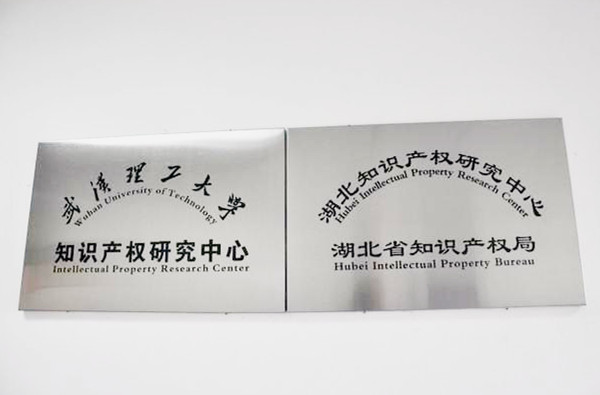 武漢理工大學
Wuhan University of Technology
知识产权研究中心
Intellectual Property Research Center
湖北知识产权研究中心
Hubei Intellectual Property Research Center
湖北省知识产权局
Hubei Intellectual Property Bureau